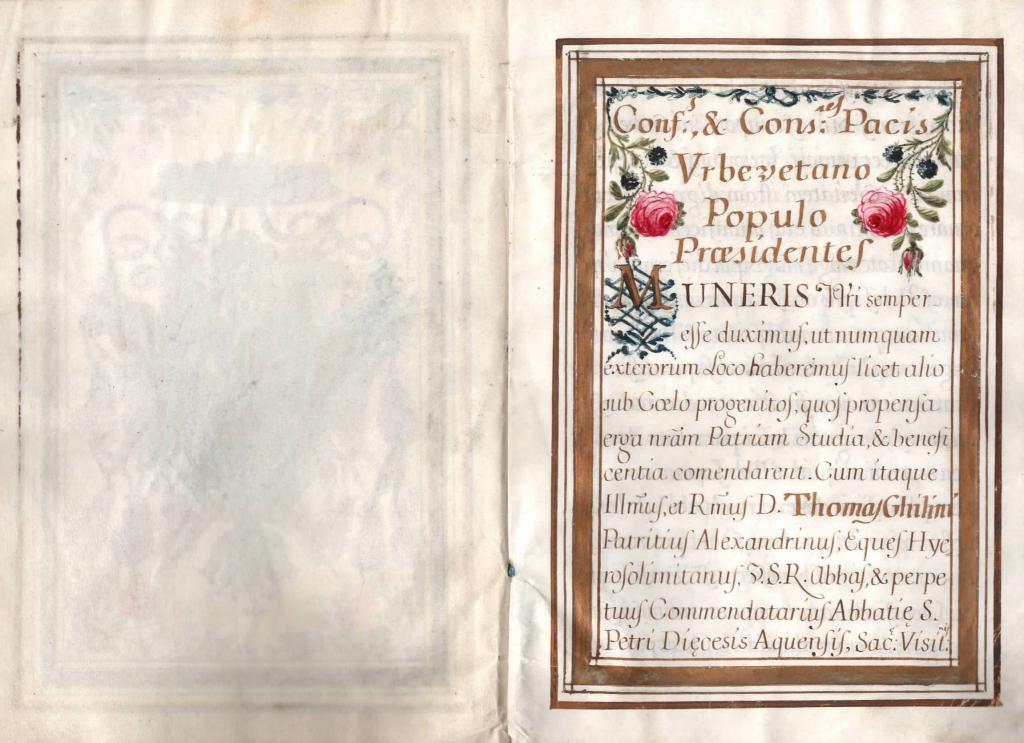 Conf:s, & Cons:res Pacis
Vrbevetano
Populo
Præsidentes
MUNERIS Nri semper
esse duximus, ut numquam
exterorum Loco haberemus licet alio
sub Cœlo progenitos, quos propensa
erga nrãm Patriam Studia, & benefi
centia comendarent. Cum itaque
Illm̃us, et Rm̃us D. Thomas Ghilini
Patritius Alexandrinus, Eques Hye
rosolimitanus, V.S.R. Abbas, & perpe
tuus Commendatarius Abbatię S.
Petri Dięcesis Aquensis, Sac: Visit: